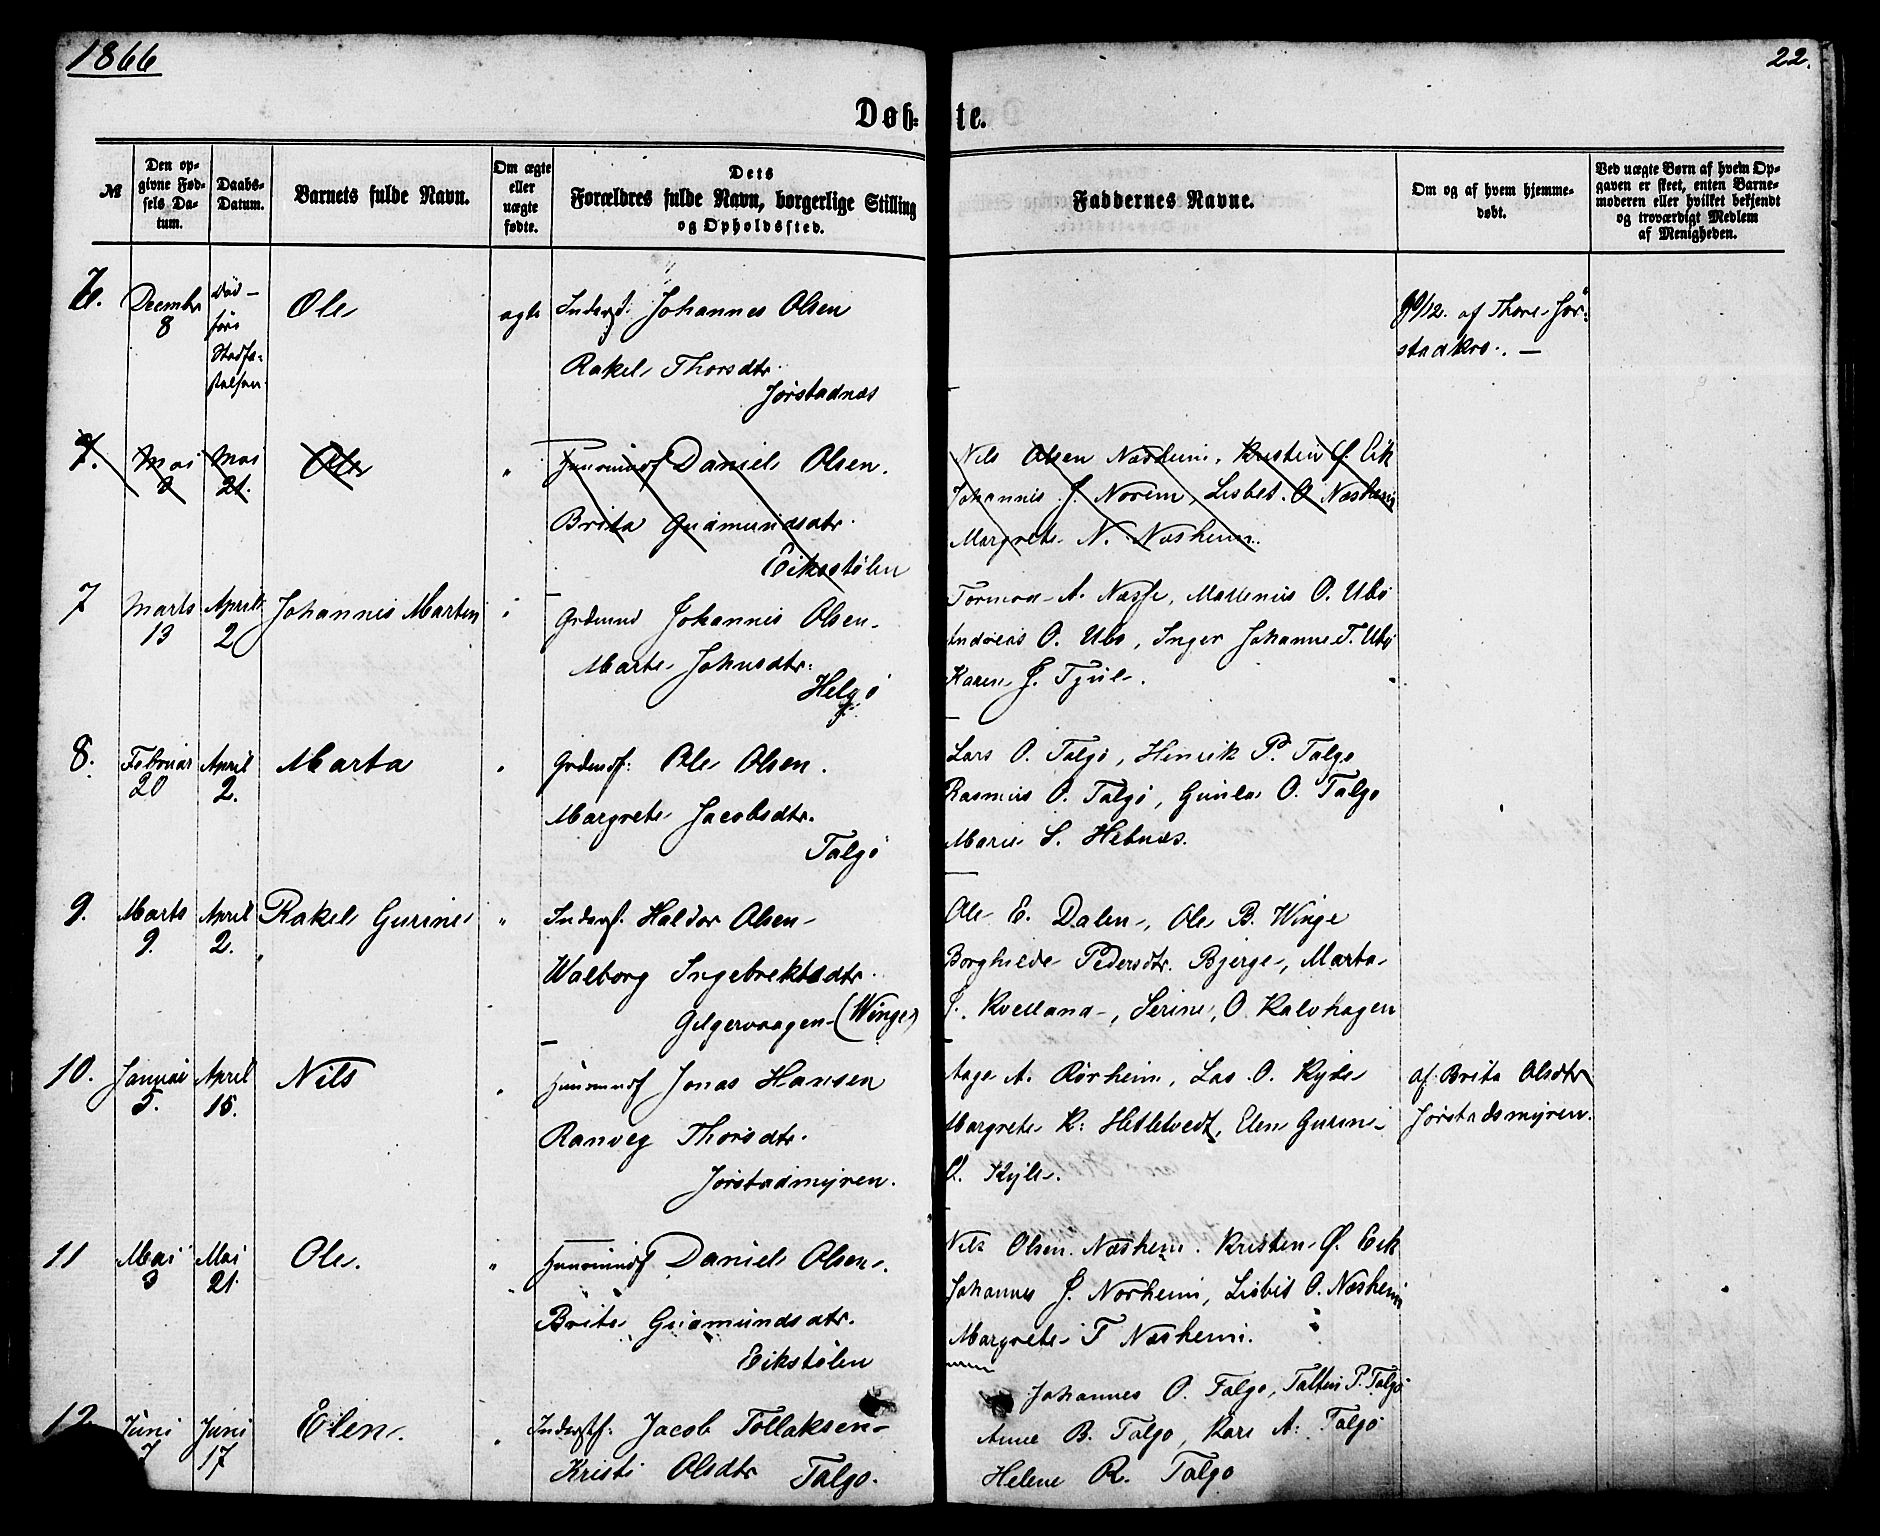 1866
22.
Døb- te.
№
Den op-
givne Fød-
sels Da-
tum.
Daabs-
Datum.
Barnets fulde Navn.
Om ægte
eller
uægte
fødte.
Dets
Forældres fulde Navn, borgerlige Stilling
og Opholdssted.
Faddernes Navne.
Om og af hvem hjemme-
døbt.
Ved uægte Børn af hvem Op-
gaven er skeet, enten Barne-
moderen eller hvilket bekjendt
og troværdigt Medlem
af Menigheden.
6. Decembr 8 Død- før Stadfæ- stelsen Ole ægte Inderst. Johannes Olsen
Rakel Thorsdtr.
Jørstadnæs
9/12. af Thore Jør-
stadkro. —
7. Mai 3 Mai 21. Ole " Huusmand Daniel Olsen.
Brita Gudmundsdtr.
Eikstølen
Nils Olsen Næsheim, Kristen Ø. Eik
Johannis J. Norem, Lisbet O. Næsheim
Margrete N. Næsheim.
7 Marts 13 April 2 Johannis Martin " Grdmnd Johannis Olsen
Marte Johnsdtr.
Helgø
Tormod A. Næsse, Mallenius O. Ubø
Andreas O. Ubø, Inger Johanne T. Ubø
Karen J. Tjul.
8. Februar 20 April 2. Marta " Grdmd: Ole Olsen.
Margrete Jacobsdtr.
Talgø
Lars O. Talgø, Henrik P. Talgø
Rasmus O. Talgø, Gunla O. Talgø
Marie S. Hebnæs.
9. Marts 9. April 2. Rakel Gurine " Inderst. Haldor Olsen
Walborg Ingebrektsdtr.
Gilgervaagen (Winge)
Ole E. Dalen, Ole B. Winge
Borghilde Pedersdtr. Bjerge, Marta
J. Kvelland, Serine O. Kalvhagen
10. Januar 5. April 15. Nils " Huusmand Jonas Hansen
Ranveg Thorsdtr.
Jørstadmyren.
Aage A. Rørheim, Las O. Kyle
Margrete K. Hetletvedt, Elen Gurine
O. Kyle.
af Brita Olsdtr
Jørstadsmyren.
11 Mai 3 Mai 21. Ole. " Huusmand Daniel Olsen.
Brite Gudmundsdtr.
Eikstølen
Nils Olsen Næsheim. Kristen Ø. Eik
Johannes J. Norheim, Lisbet O. Næsheim
Margrete T Næsheim.
12 Juni 7 Juni 17 Elen. " Inderst: Jacob Tollaksen
Kristi Olsdtr Talgø.
Johannes O. Talgø, Talten P. Talgø
Anne B. Talgø, Kari A. Talgø
Helene R. Talgø